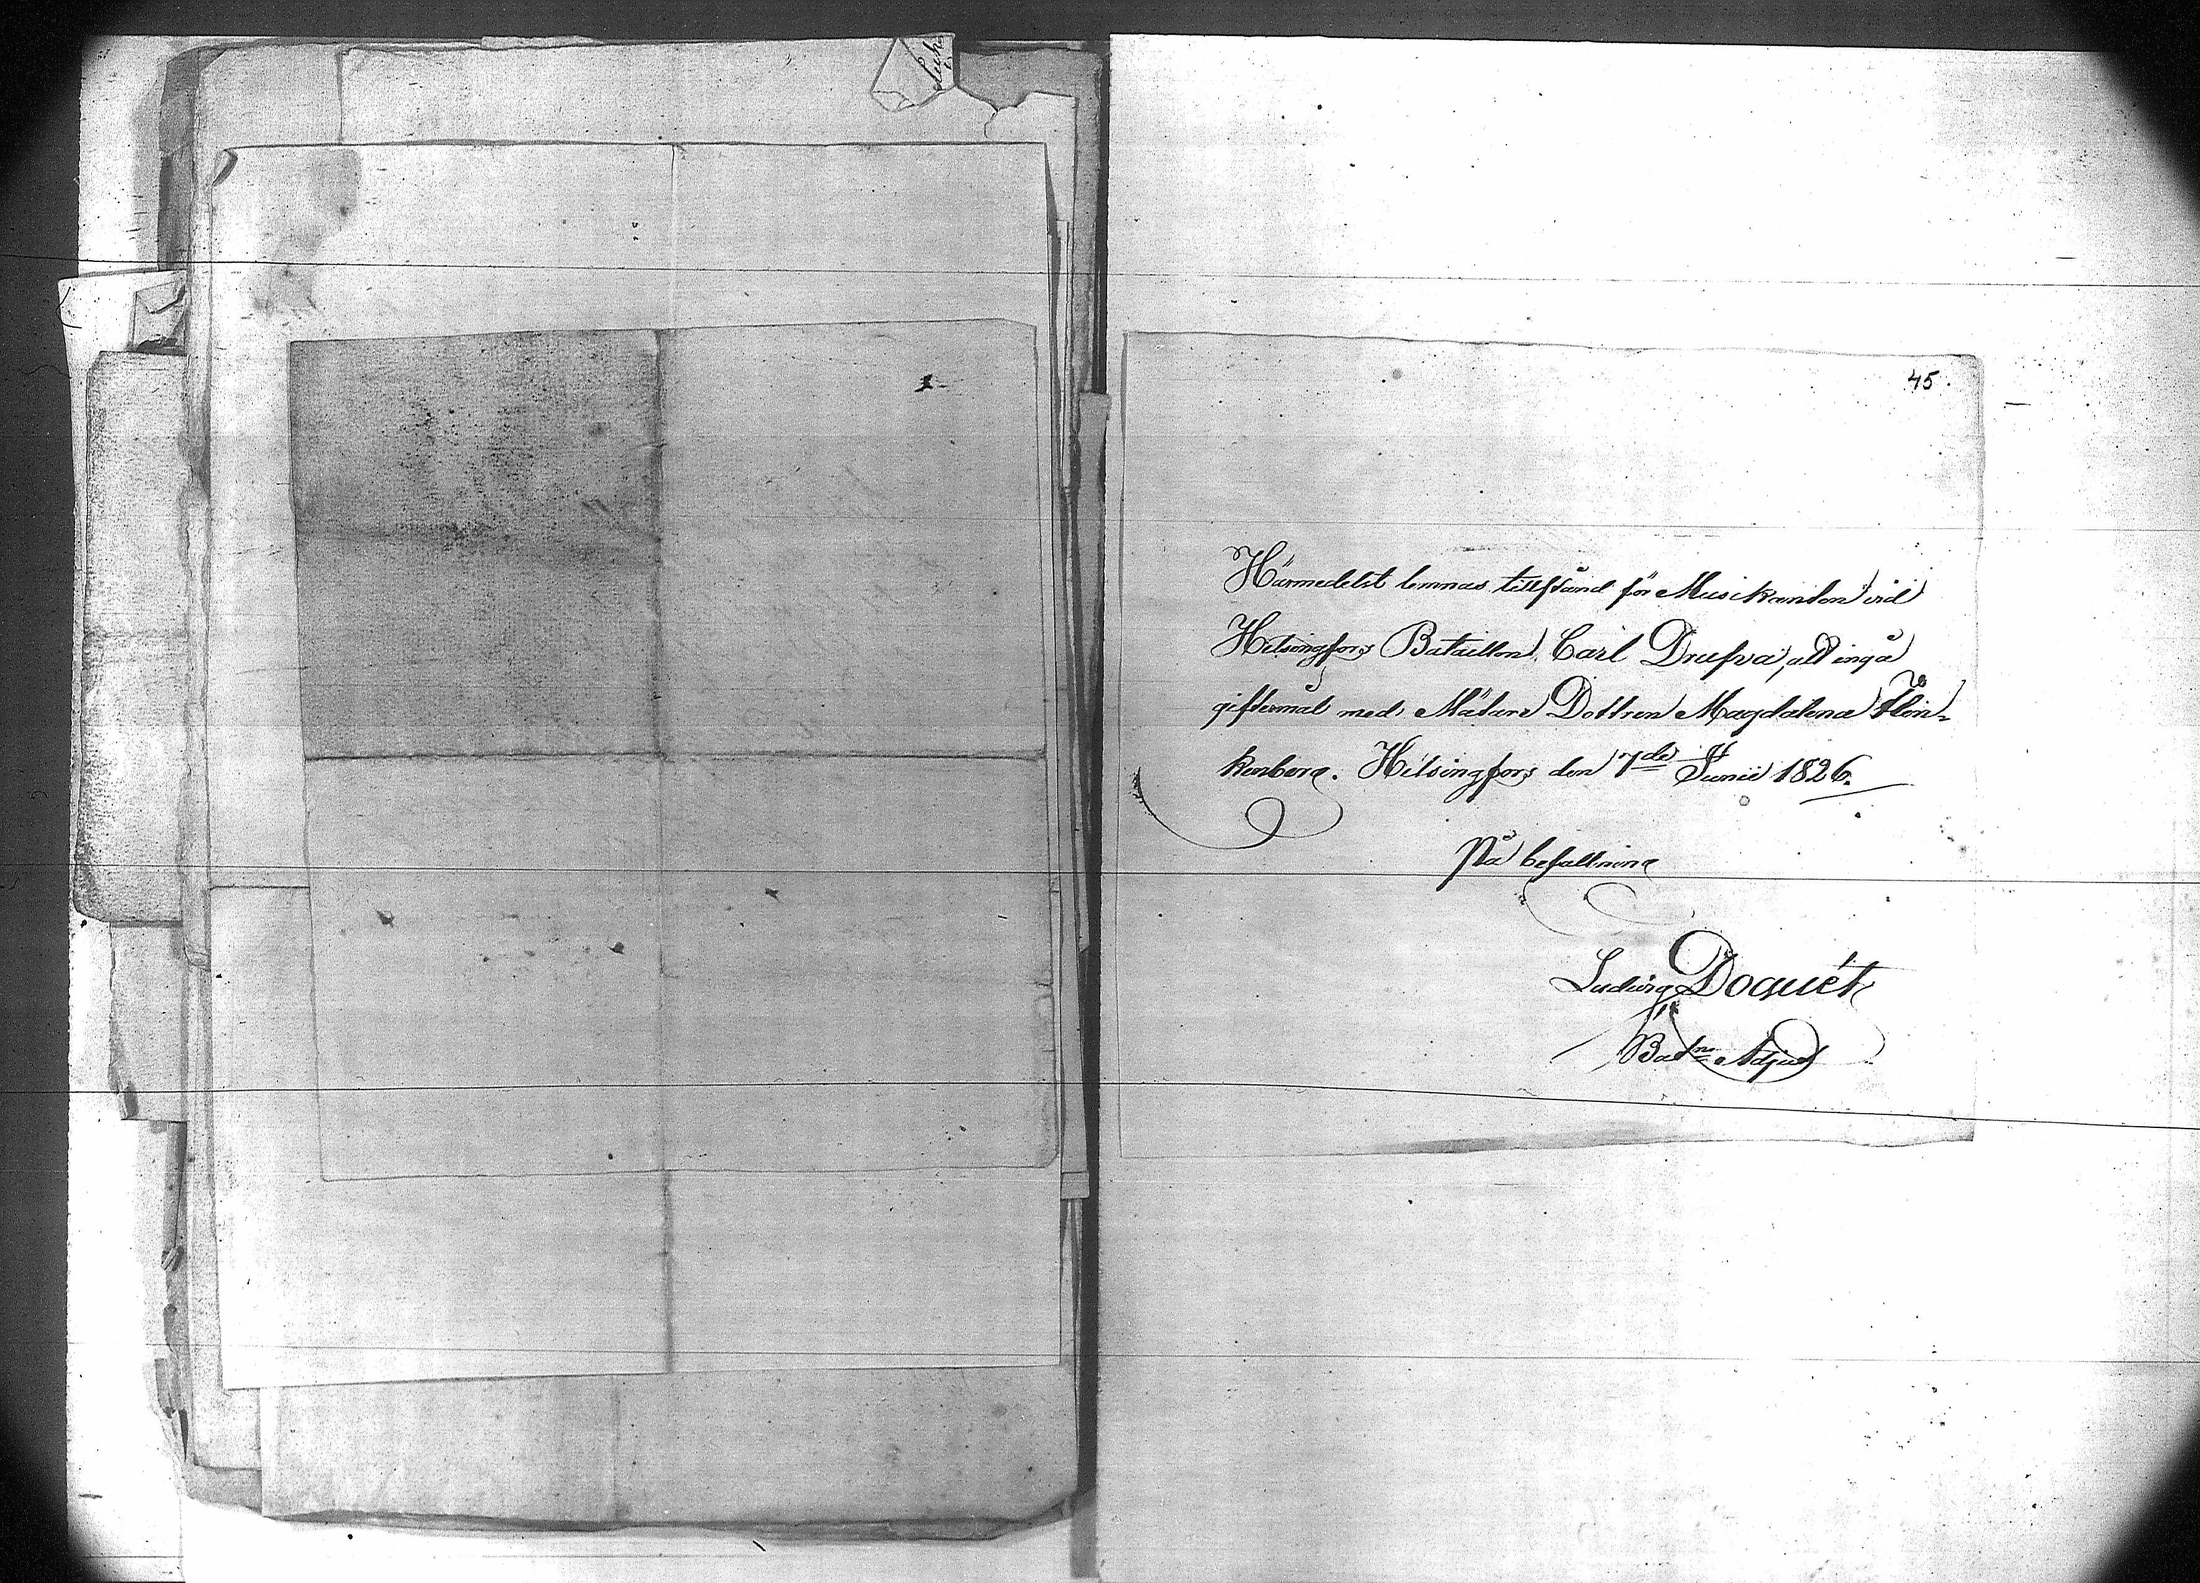 45.
Härmedelst lemnas tillstånd för Musikanten vid
Helsingfors Bataillon, Carl Drufva, att ingå
giftermål med Mätare Dottren Magdalena Klin-
kenberg. Helsingfors den 7de Junii 1826.
På befallning
Ludvig Doquét
Batns Adjut